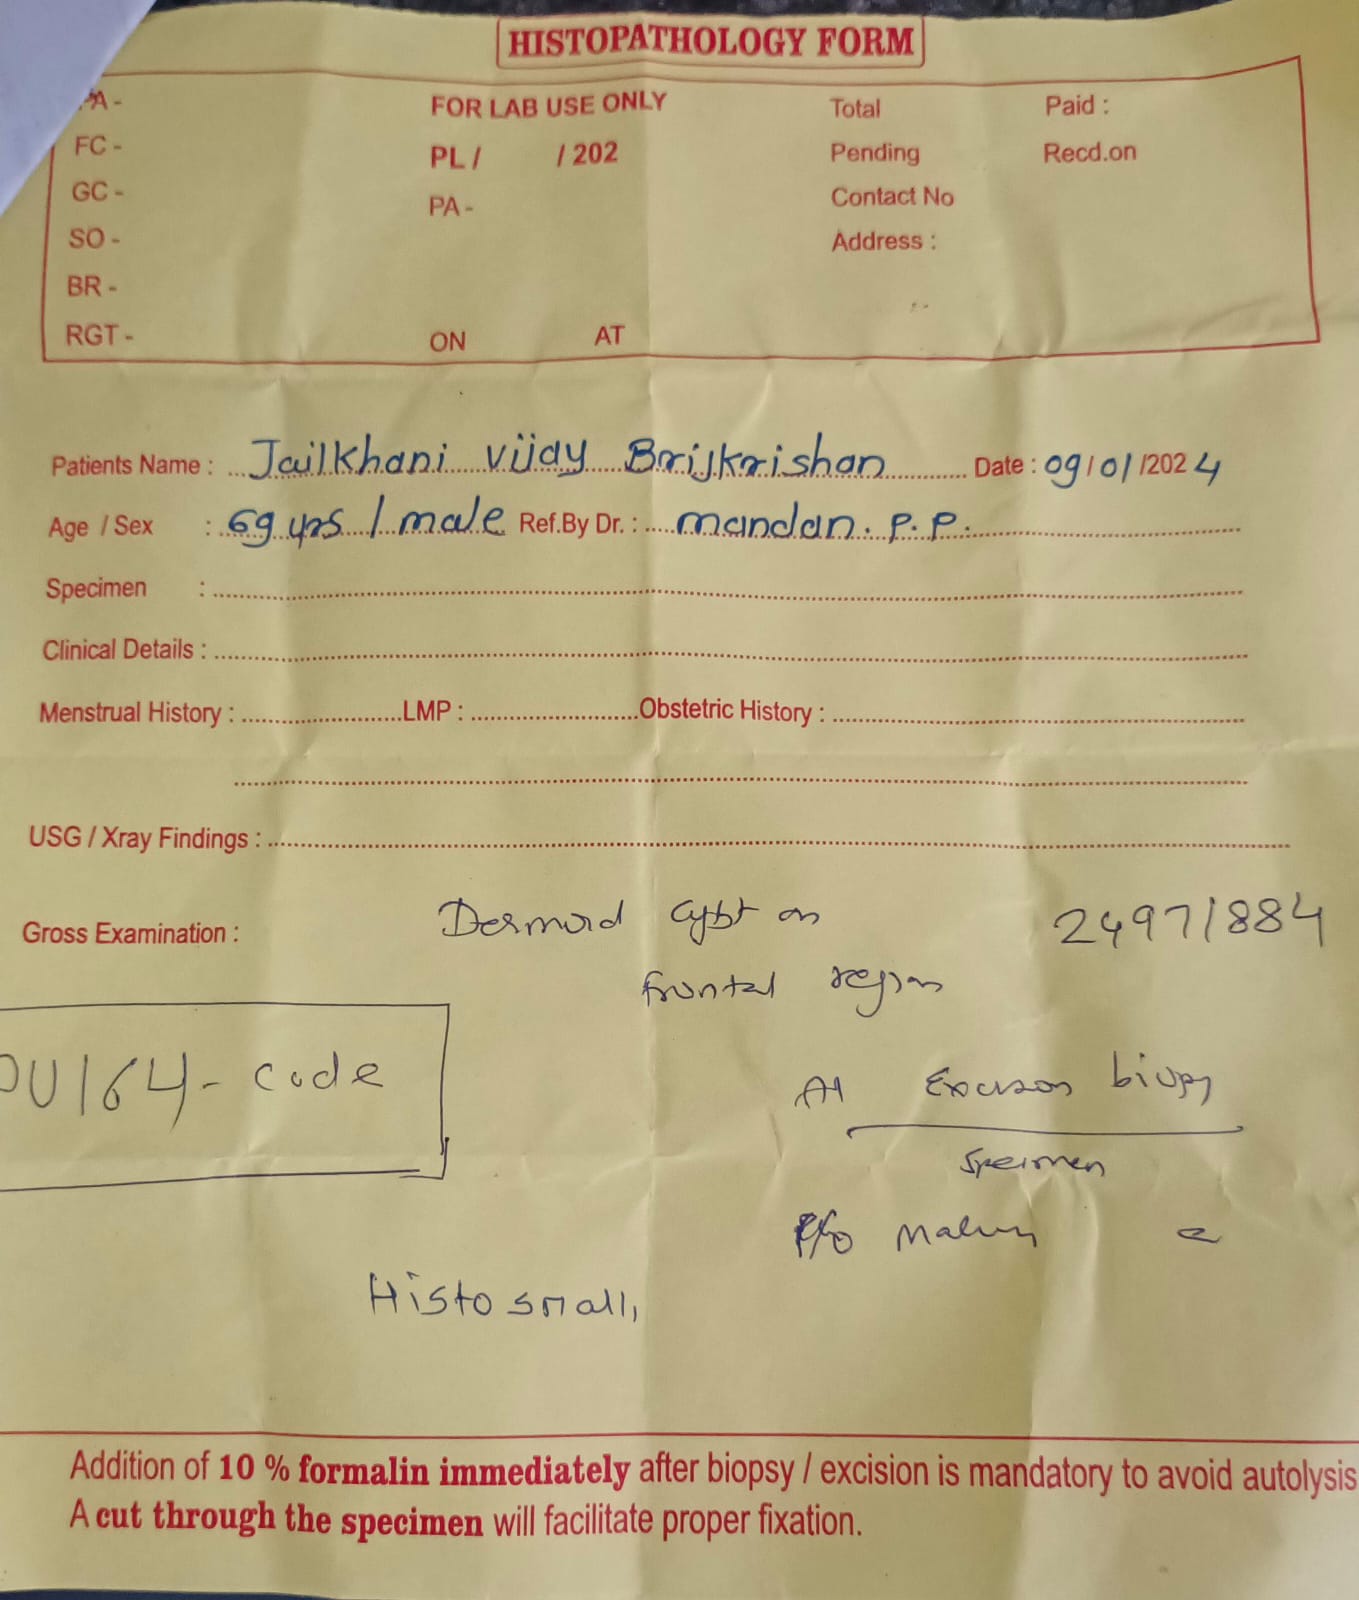 HISTOPATHOLOGY FORM
PA -
FOR LAB USE ONLY
Total
Paid :
FC -
PL / / 202
Pending
Recd.on
GC -
PA -
Contact No
SO -
Address :
BR -
RGT -
ON AT
Patients Name : Jailkhani vijay Brijkrishan Date : 09/01/2024
Age / Sex : 69 yrs / male Ref.By Dr. : mandan. P. P.
Specimen :
Clinical Details :
Menstrual History : LMP : Obstetric History :
USG / Xray Findings :
Gross Examination : Dermoid Cyst on 2497/884
frontal region
U164- code
Excision biopsy
Specimen
Histo small,
Addition of 10 % formalin immediately after biopsy / excision is mandatory to avoid autolysis
A cut through the specimen will facilitate proper fixation.